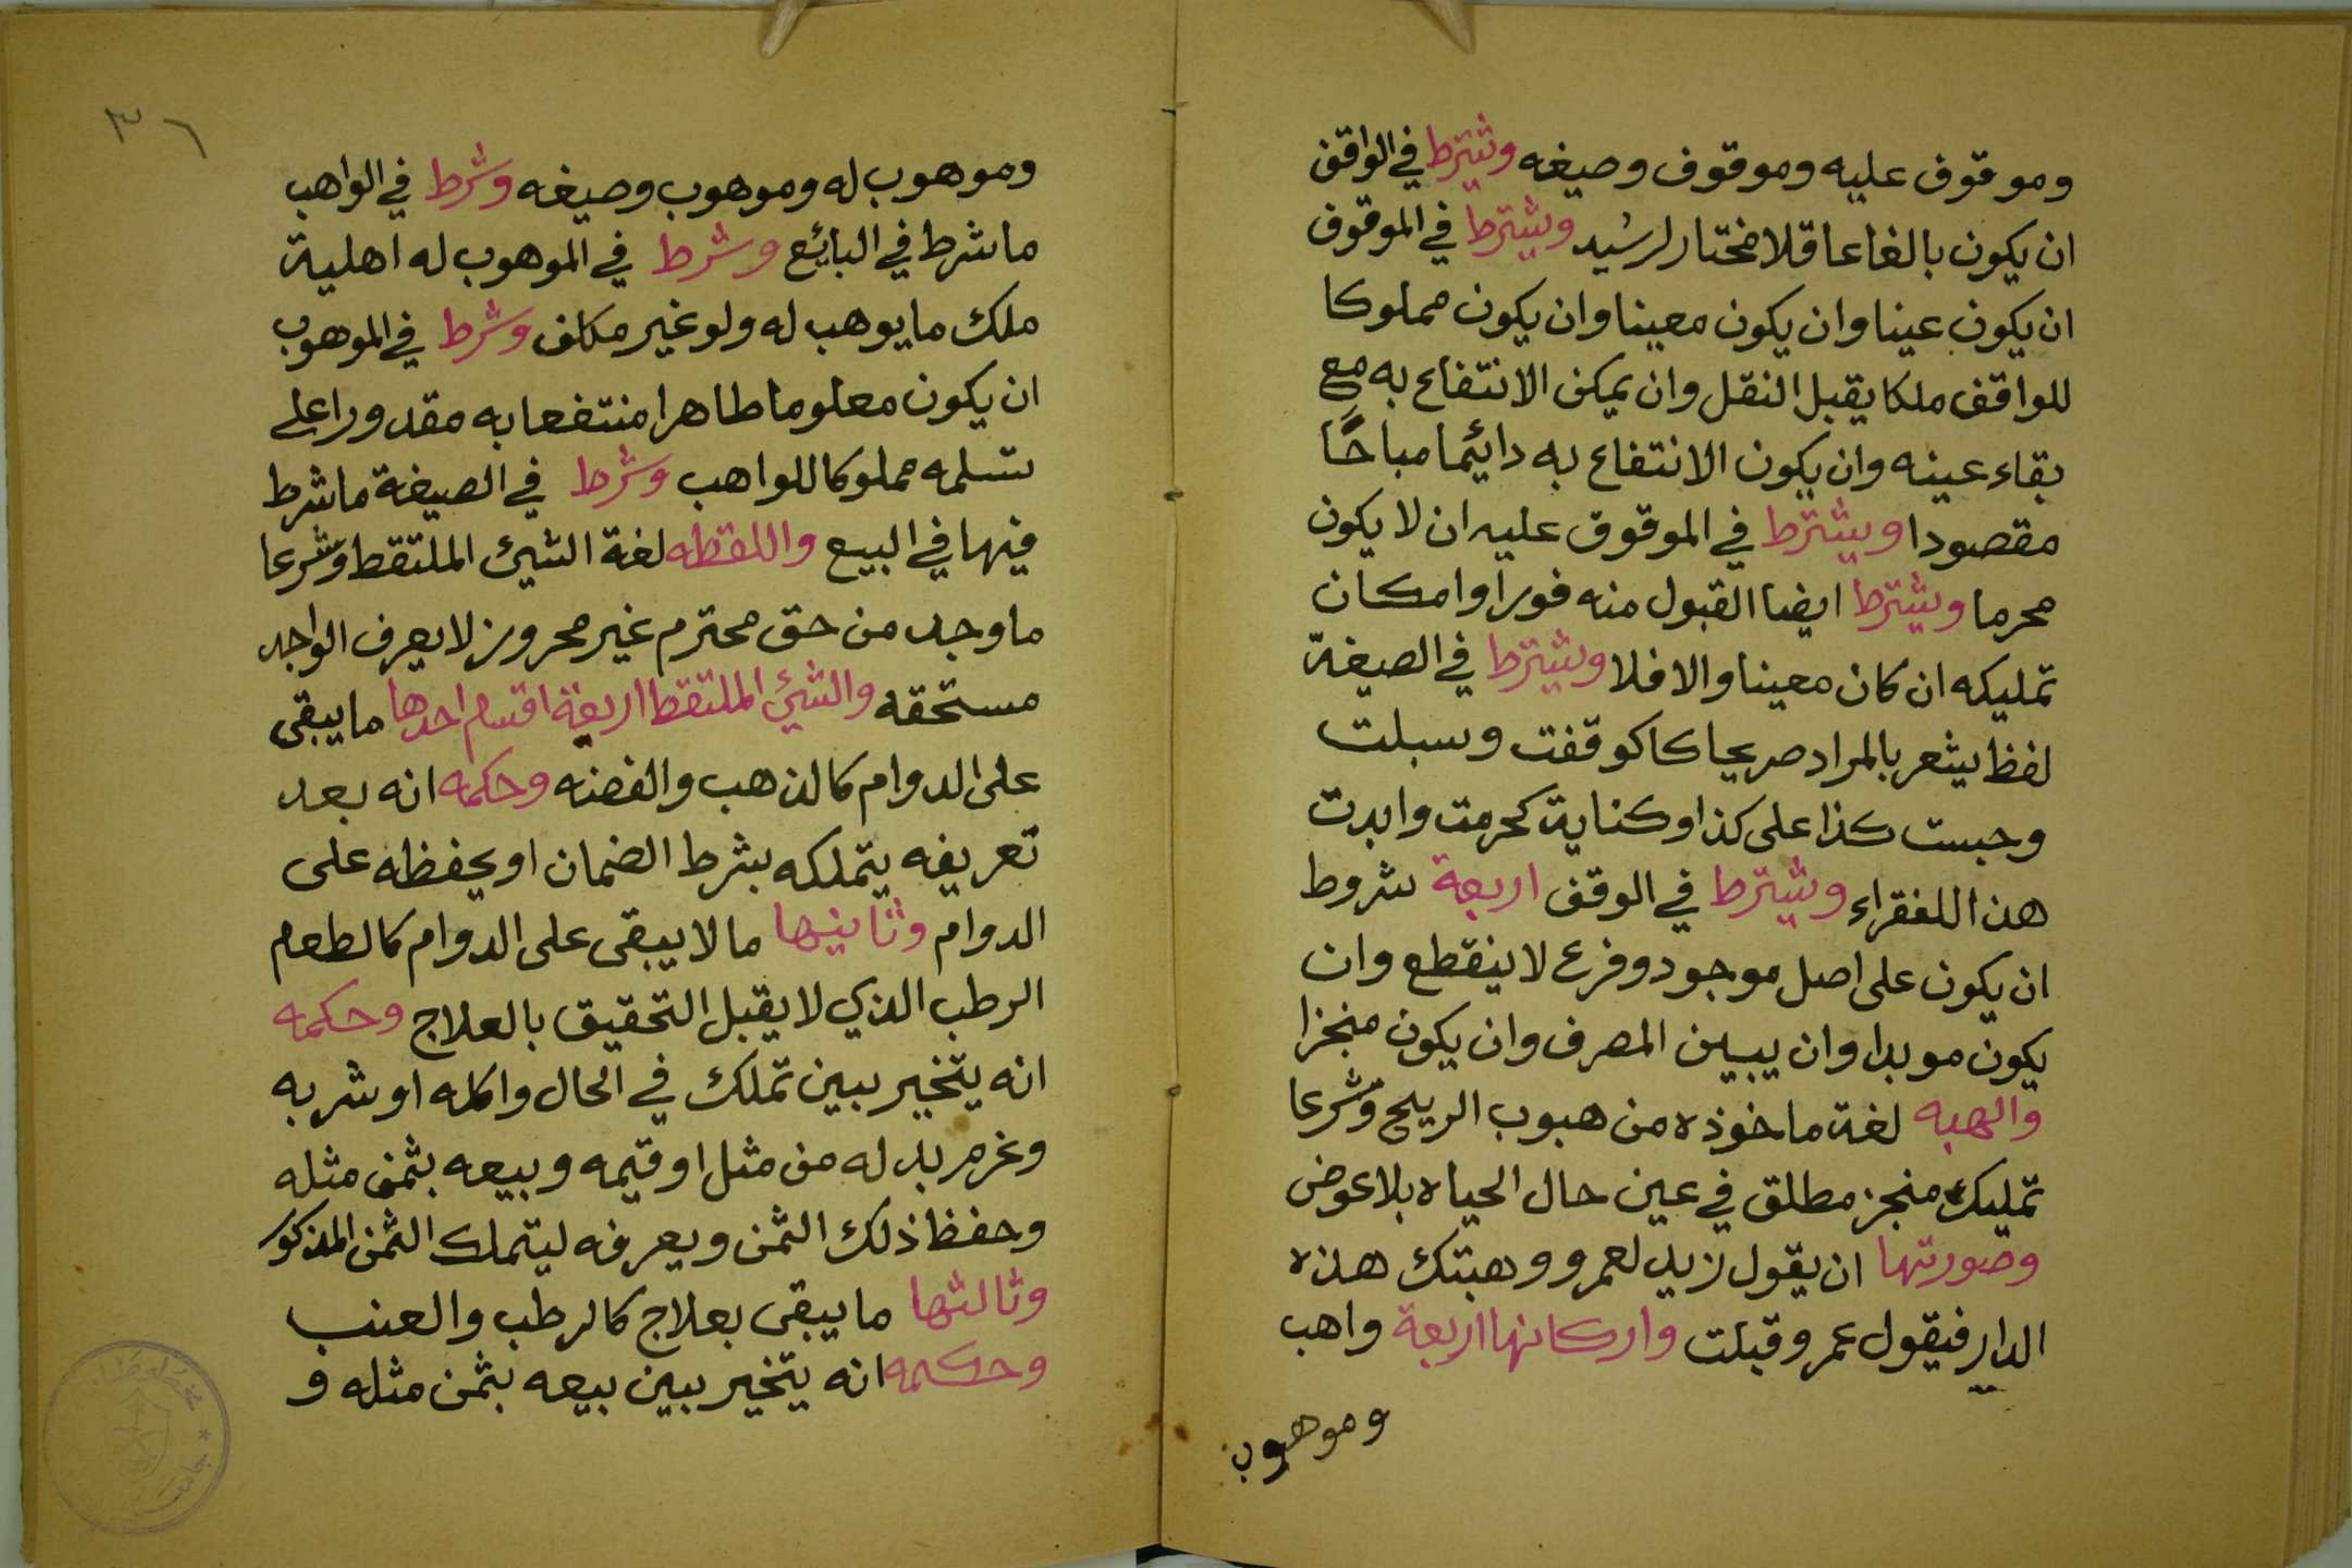 وموقوف عليه وموقوف وصيغه ويشترط في الواقف
ان يكون بالغا عاقلا مختار لرشيد ويشترط في الموقوف
ان يكون عينا وان يكون معينا وان يكون مملوكا
للواقف ملكا يقبل النقل وان يمكن الانتفاع به مع
بقاء عينه وان يكون الانتفاع به دائيما مباحًا
مقصودا ويشترط في الموقوق عليه ان لا يكون
محرما ويشترط ايضا القبول منه فورا وامكان
تمليكه ان كان معينا والا فلا ويشترط في الصيغة
لفظ يشعر بالمراد صريحا كاكوقفت وسبلت
وحبست كذا على كذا وكناية كحرمت وابدت
هذا للفقراء ويشترط في الوقف اربعة شروط
ان يكون على اصل موجود وفرع لا ينقطع وان
يكون موبدا وان يبين المصرف وان يكون منجزا
والهبه لغة ماخوذه من هبوب الريح وشرعا
تمليك منجز مطلق في عين حال الحياه بلا عوض
وصورتها ان يقول زيد لعمرو وهبتك هذه
الدار فيقول عمرو قبلت واركانها اربعة واهب
وموهوب
٣٦
وموهوب له وموهوب وصيغه وشرط في الواهب
ما شرط في البائع وشرط في الموهوب له اهلية
ملك ما يوهب له ولو غير مكلف وشرط في الموهوب
ان يكون معلوما طاهرا منتفعا به مقدورا على
تسلمه مملوكا للواهب وشرط في الصيغة ما شرط
فيها في البيع واللقطه لغة الشيئ الملتقط وشرعا
ما وجد من حق محترم غير محروز لا يعرف الواجد
مستحقه والشيئ الملتقط اربعة اقسام احدها ما يبقى
على الدوام كالذهب والفضه وحكمه انه بعد
تعريفه يتملكه بشرط الضمان او يحفظه على
الدوام وثانيها ما لا يبقى على الدوام كالطعام
الرطب الذي لا يقبل التحقيق بالعلاج وحكمه
انه يتخير بين تملك في الحال واكله او شربه
وغرم بدله من مثل او قيمه وبيعه بثمن مثله
وحفظ ذلك الثمن ويعرفه ليتملك الثمن المذكور
وثالثها ما يبقى بعلاج كالرطب والعنب
وحكمه انه يتخير بين بيعه بثمن مثله و